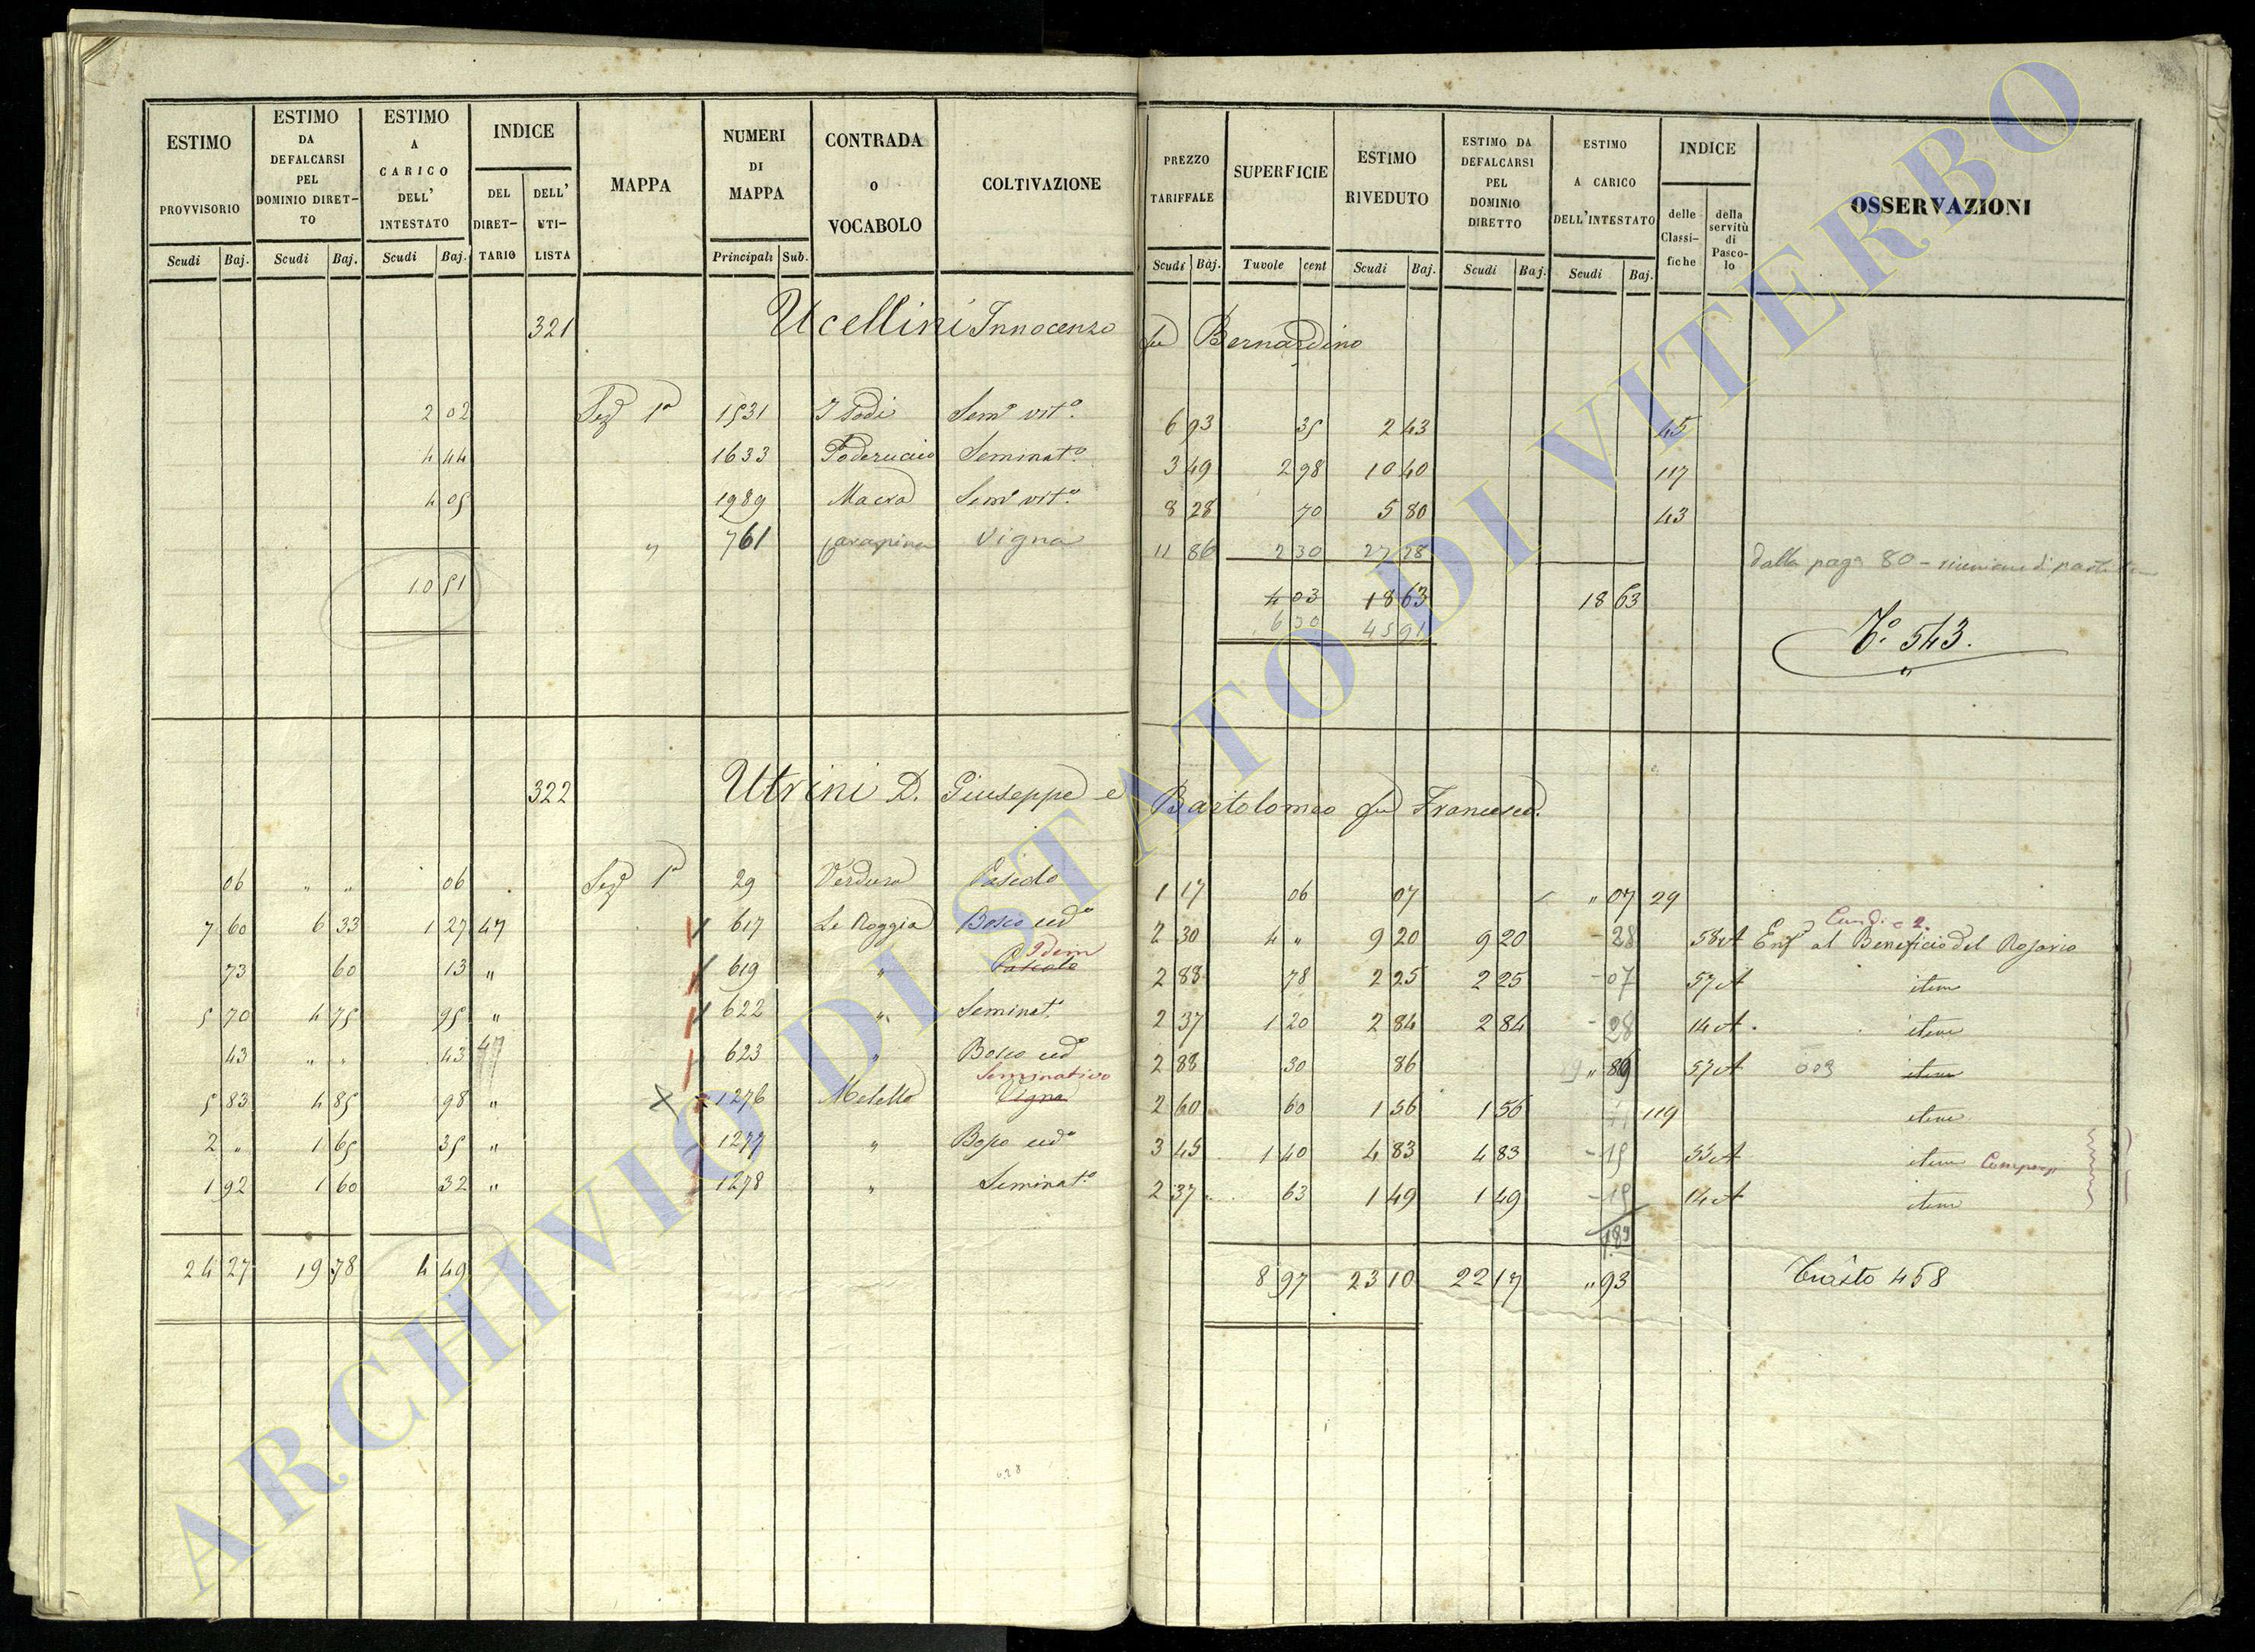 ESTIMO PROVVISORIO
ESTIMO DA DEFALCARSI PEL DOMINIO DIRET-TO
ESTIMO A CARICO DELL' INTESTATO
INDICE
DEL DIRET-TARIO
DELL' UTI-LISTA
MAPPA
NUMERI DI MAPPA
CONTRADA O VOCABOLO
COLTIVAZIONE
PREZZO TARIFFALE
SUPERFICIE
ESTIMO RIVEDUTO
ESTIMO DA DEFALCARSI PEL DOMINIO DIRETTO
ESTIMO A CARICO DELL'INTESTATO
INDICE
delle Classi-fiche
della servitù di Pasco-lo
OSSERVAZIONI
Scudi Baj. Scudi Baj. Scudi Baj. Principali Sub. Scudi Baj. Tavole cent Scudi Baj. Scudi Baj. Scudi Baj.
321 Ucellini Innocenzo fu Bernardino
2 02 Sezᵉ 1ª 1531 I Podi Semᵒ vitᵒ. 6 93 35 2 43 45
4 44 1633 Poderuccio Seminatᵒ. 3 49 2 98 10 40 117
4 05 1989 Macra Semᵒ vitᵒ. 8 28 70 5 80 43
" 761 Vigna 11 86 2 30 27 28 dalla paga 80 - riunione di partita
10 51 4 03 18 63 18 63
6 30 45 91
Tᵒ. 543.
322 Utrini D. Giuseppe e Bartolomeo fu Francesco.
06 " " 06 Sezᵉ 1ª 29 Verdura Pascolo 1 17 06 07 " 07 29
7 60 6 33 1 27 47 617 Le Roggia Bosco cedᵒ 2 30 4 " 9 20 9 20 - 28 58 A Enfᵃ al Beneficio del Rosario
73 60 13 " 619 " Pascolo Idem 2 88 78 2 25 2 25 - 07 57 A item
5 70 4 75 95 " 622 " Seminatᵒ 2 37 1 20 2 84 2 84 - 28 14 A. item
43 " " 43 47 623 " Bosco cedᵒ 2 88 30 86 " 86 57 A 003 item
5 83 4 85 98 " X 1276 Melella Vigna Seminativo 2 60 60 1 56 1 56 119 item
2 " 1 65 35 " 1277 " Bosco cedᵒ 3 45 1 40 4 83 4 83 - 15 55 A item
1 92 1 60 32 " 1278 " Seminatᵒ 2 37 63 1 49 1 49 - 15 14 A item
183
24 27 19 78 4 49 8 97 23 10 22 17 " 93 458
ARCHIVIO DI STATO DI VITERBO